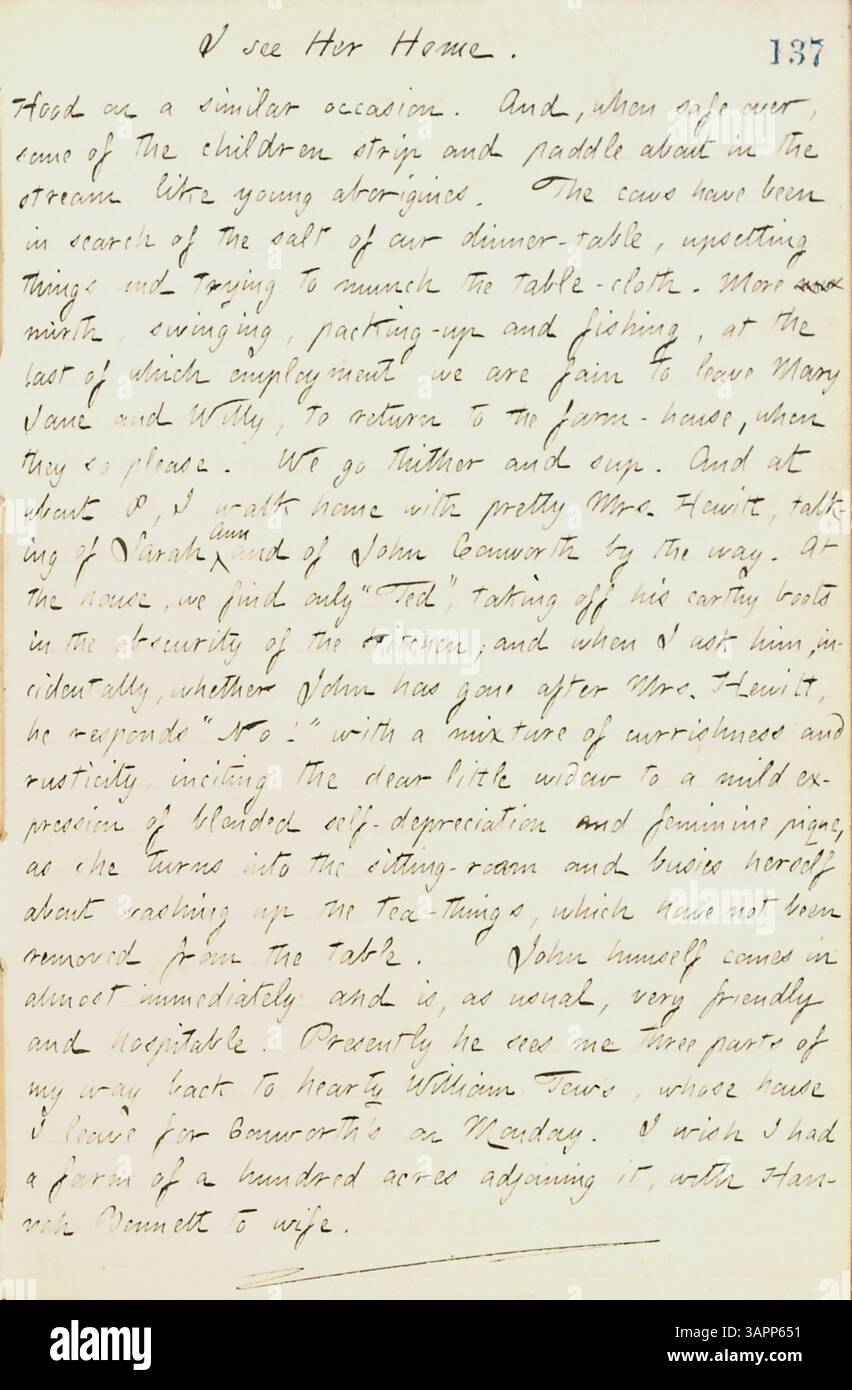 I see Her Home.
137
Hood on a similar occasion. And, when safe over,
some of the children strip and paddle about in the
stream like young aborigines. The cows have been
in search of the salt of our dinner-table, upsetting
things and trying to munch the table-cloth. More
mirth, swinging, packing-up and fishing, at the
last of which employment we are fain to leave Mary
Jane and Willy, to return to the farm-house, when
they so please. We go thither and sup. And at
about 8, I walk home with pretty Mrs. Hewitt, talk-
ing of Sarah Ann and of John Conworth by the way. At
the house, we find only "Ted", taking off his earthy boots
in the obscurity of the kitchen; and when I ask him, in-
cidentally, whether John has gone after Mrs. Hewitt,
he responds "No!" with a mixture of currishness and
rusticity, inciting the dear little widow to a mild ex-
pression of blended self-depreciation and feminine pique,
as she turns into the sitting-room and busies herself
about washing up the tea-things, which have not been
removed from the table. John himself comes in
almost immediately and is, as usual, very friendly
and hospitable. Presently he sees me three parts of
my way back to hearty William Tew's, whose house
I leave for Conworth's on Monday. I wish I had
a farm of a hundred acres adjoining it, with Han-
nah Bennett to wife.
alamy
Image ID: 3APP651
www.alamy.com